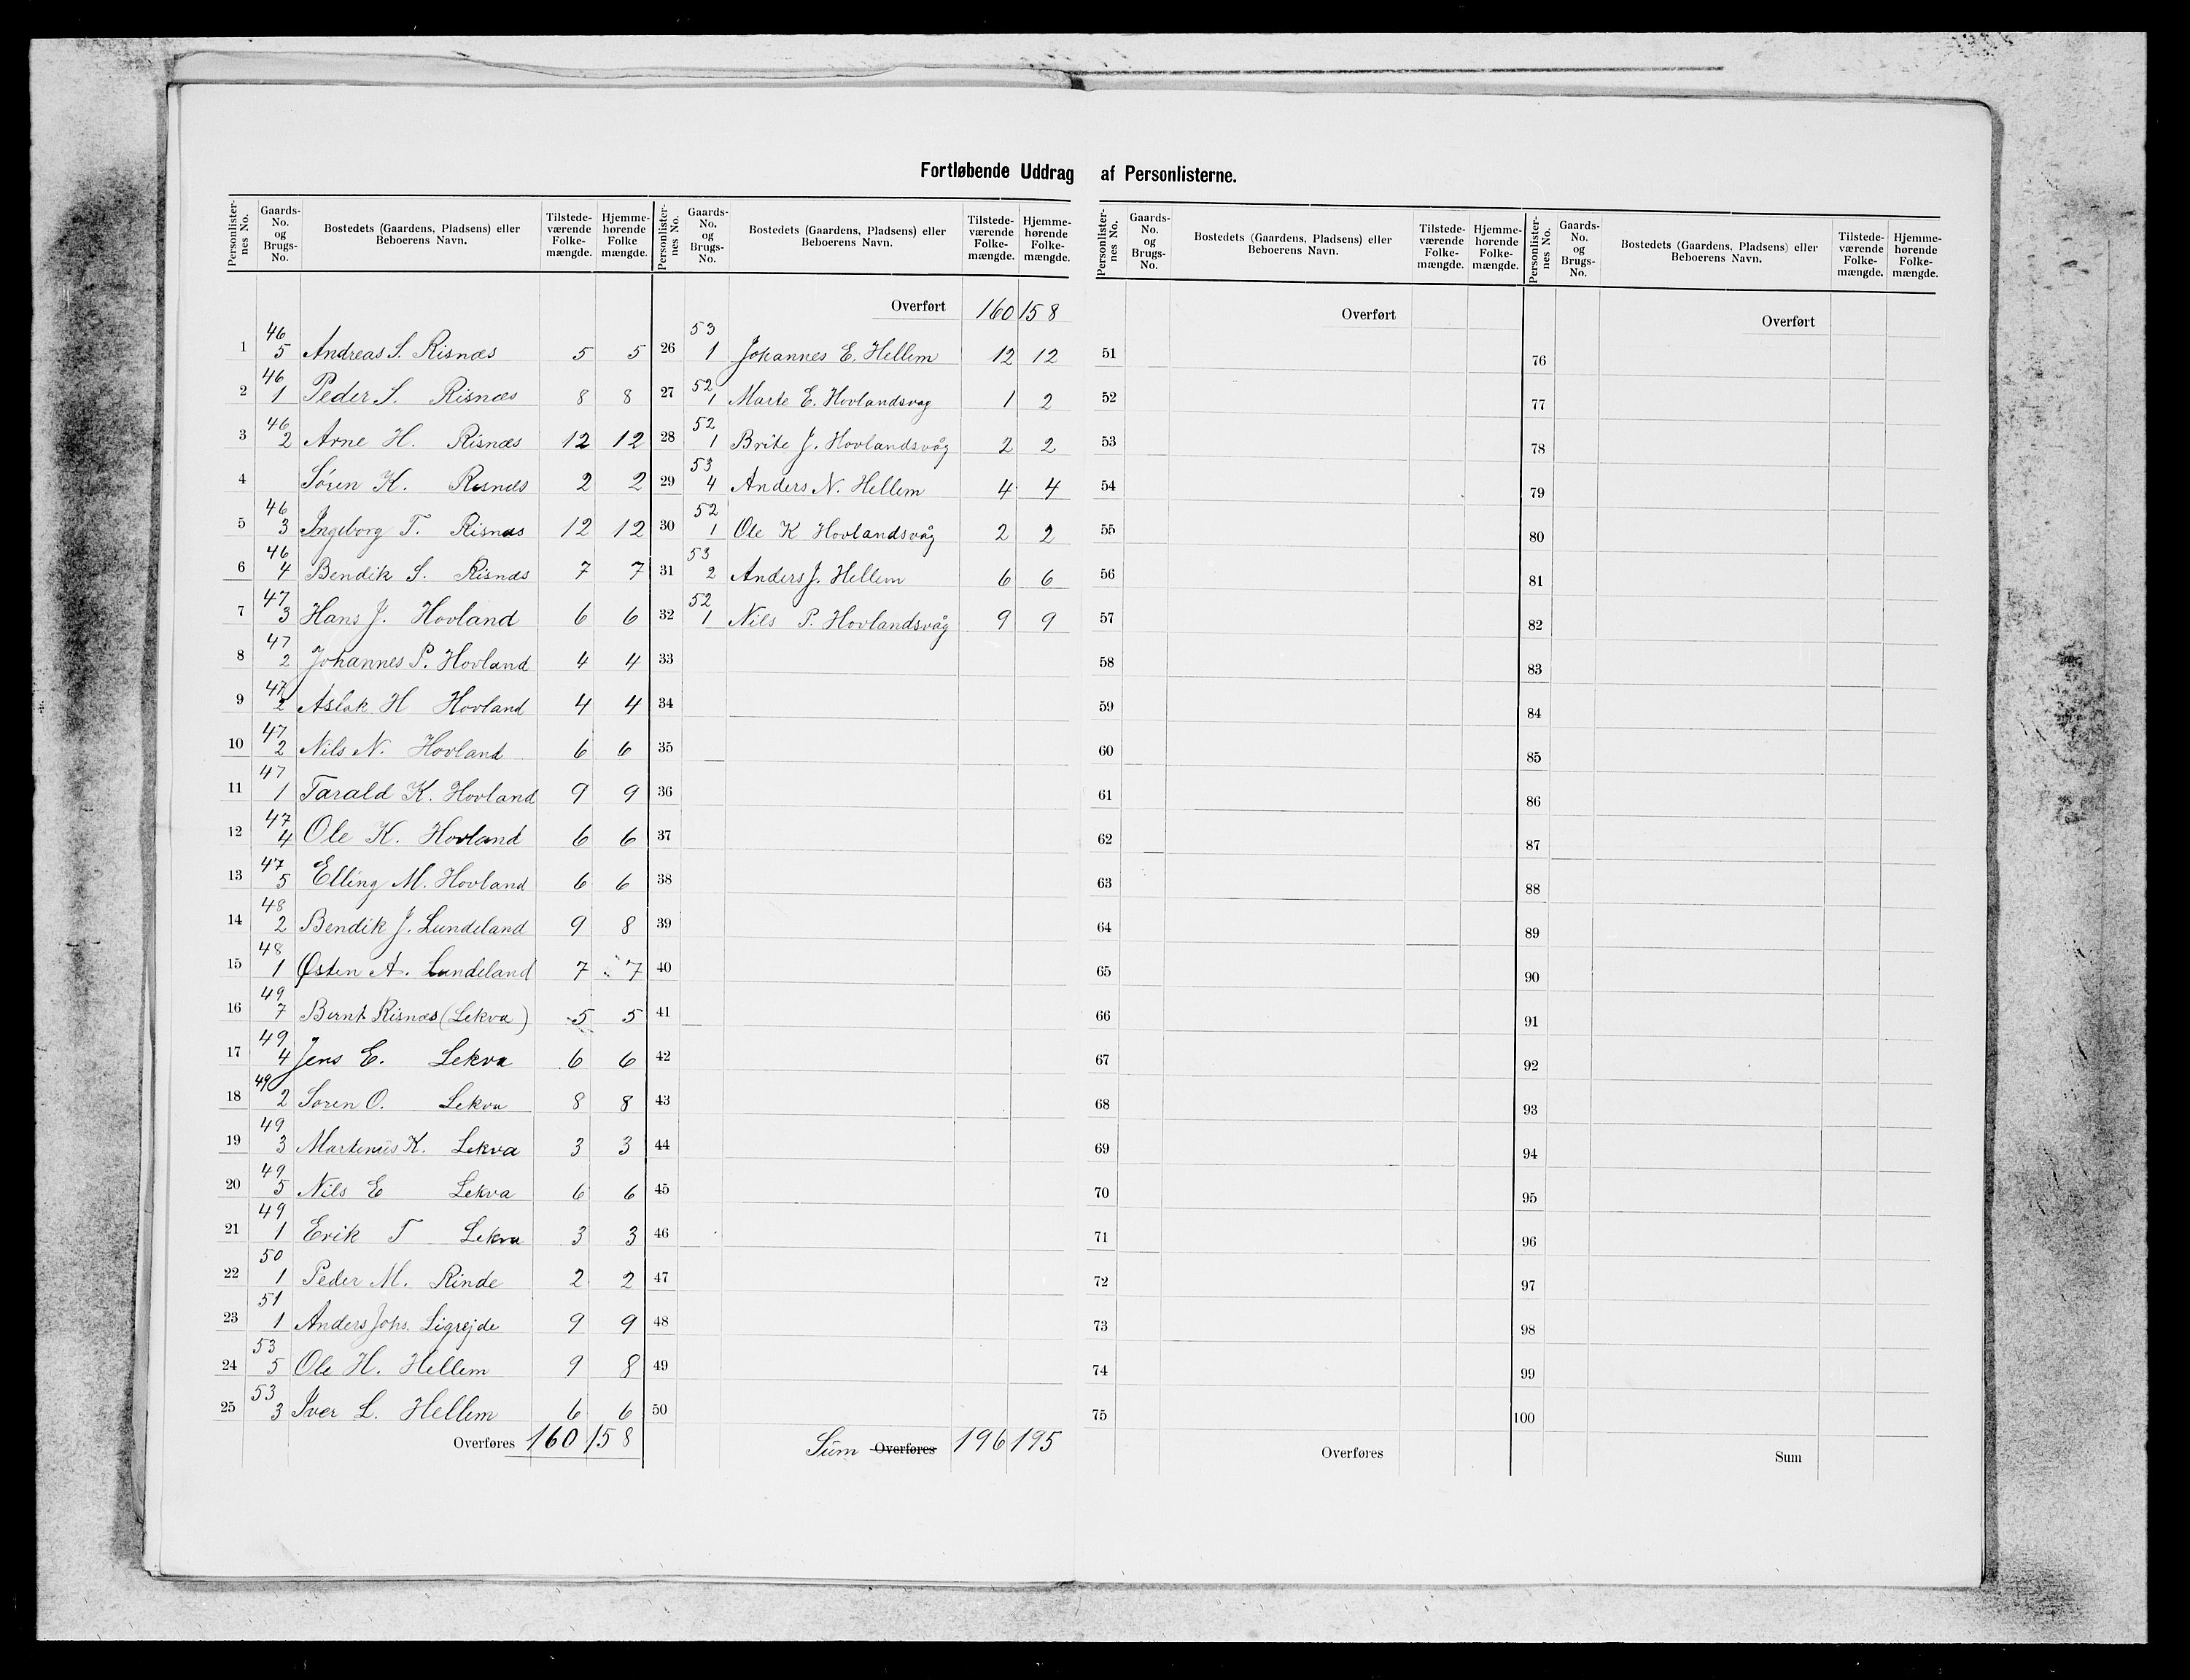 Fortløbende Uddrag af Personlisterne.
Personlister-nes No. Gaards-No. og Brugs-No. Bostedets (Gaardens, Pladsens) eller Beboerens Navn. Tilstede-værende Folke-mængde. Hjemme-hørende Folke mængde. Personlister-nes No. Gaards-No. og Brugs-No. Bostedets (Gaardens, Pladsens) eller Beboerens Navn. Tilstede-værende Folke-mængde. Hjemme-hørende Folke-mængde.
1 46 5 Andreas S. Risnæs 5 5
2 46 1 Peder S. Risnæs 8 8
3 46 2 Arne H. Risnæs 12 12
4 Søren K. Risnæs 2 2
5 46 3 Ingeborg T. Risnæs 12 12
6 46 4 Bendik S. Risnæs 7 7
7 47 3 Hans J. Hovland 6 6
8 47 2 Johannes P. Hovland 4 4
9 47 2 Aslak H Hovland 4 4
10 47 2 Nils N. Hovland 6 6
11 47 1 Tarald K. Hovland 9 9
12 47 4 Ole K. Hovland 6 6
13 47 5 Elling M. Hovland 6 6
14 48 2 Bendik J. Lundeland 9 8
15 48 1 Østen A. Lundeland 7 7
16 49 7 Bernt Risnæs (Lekva) 5 5
17 49 4 Jens E. Lekva 6 6
18 49 2 Søren O. Lekva 8 8
19 49 3 Martinus K. Lekva 3 3
20 49 5 Nils E Lekva 6 6
21 49 1 Erik T Lekva 3 3
22 50 1 Peder M. Rinde 2 2
23 51 1 Anders Johs. Ligrejde 9 9
24 53 5 Ole H. Hellem 9 8
25 53 3 Iver L. Hellem 6 6
Overføres 160 158
Overført 160 158
26 53 1 Johannes E. Hellem 12 12
27 52 1 Marte E. Hovlandsvag 1 2
28 52 1 Brite J. Hovlandsvåg 2 2
29 53 4 Anders N. Hellem 4 4
30 52 1 Ole K Hovlandsvåg 2 2
31 53 2 Anders J. Hellem 6 6
32 52 1 Nils P. Hovlandsvåg 9 9
33
34
35
36
37
38
39
40
41
42
43
44
45
46
47
48
49
50
Sum Overføres 196 195
Personlister-nes No. Gaards-No. og Brugs-No. Bostedets (Gaardens, Pladsens) eller Beboerens Navn. Tilstede-værende Folke-mængde. Hjemme-hørende Folke-mængde. Personlister-nes No. Gaards-No. og Brugs-No. Bostedets (Gaardens, Pladsens) eller Beboerens Navn. Tilstede-værende Folke-mængde. Hjemme-hørende Folke-mængde.
Overført
51
52
53
54
55
56
57
58
59
60
61
62
63
64
65
66
67
68
69
70
71
72
73
74
75
Overføres
Overført
76
77
78
79
80
81
82
83
84
85
86
87
88
89
90
91
92
93
94
95
96
97
98
99
100
Sum